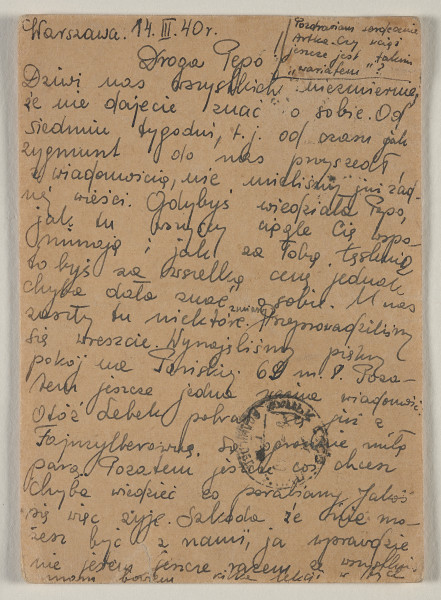 Warszawa. 14. III. 40r.
Pozdrawiam serdecznie
Artka. Czy wciąż
jeszcze jest takim
"wariatem"?
Droga Pepo!
Dziwi nas wszystkich niezmiernie,
że nie dajecie znać o sobie. Od
siedmiu tygodni, t. j. od czasu jak
Zygmunt do nas przyszedł
z wiadomością, nie mieliśmy już żad-
nej wieści. Gdybyś wiedziała Pepo,
jak tu wszyscy ciągle Cię wspo-
minają i jak za Tobą tęsknią
to byś za wszelką cenę jednak
chyba dała znać o sobie. U nas
zaszły tu niektóre zmiany. Przeprowadziliśmy
się wreszcie. Wynajęliśmy piękny
pokój na Pańskiej 69 m. 8. Poza-
tem jeszcze jedna ważna wiadomość.
Otóż Lebek pobrał się już z
Fajnzylberówną. Są naprawdę miłą
parą. Pozatem jeszcze coś chcesz
chyba wiedzieć co porabiamy. Jakoś
się więc żyje. Szkoda że nie mo-
żesz być z nami, ja wprawdzie
nie jestem jeszcze razem ze wszystkimi
mam bowiem lekcji